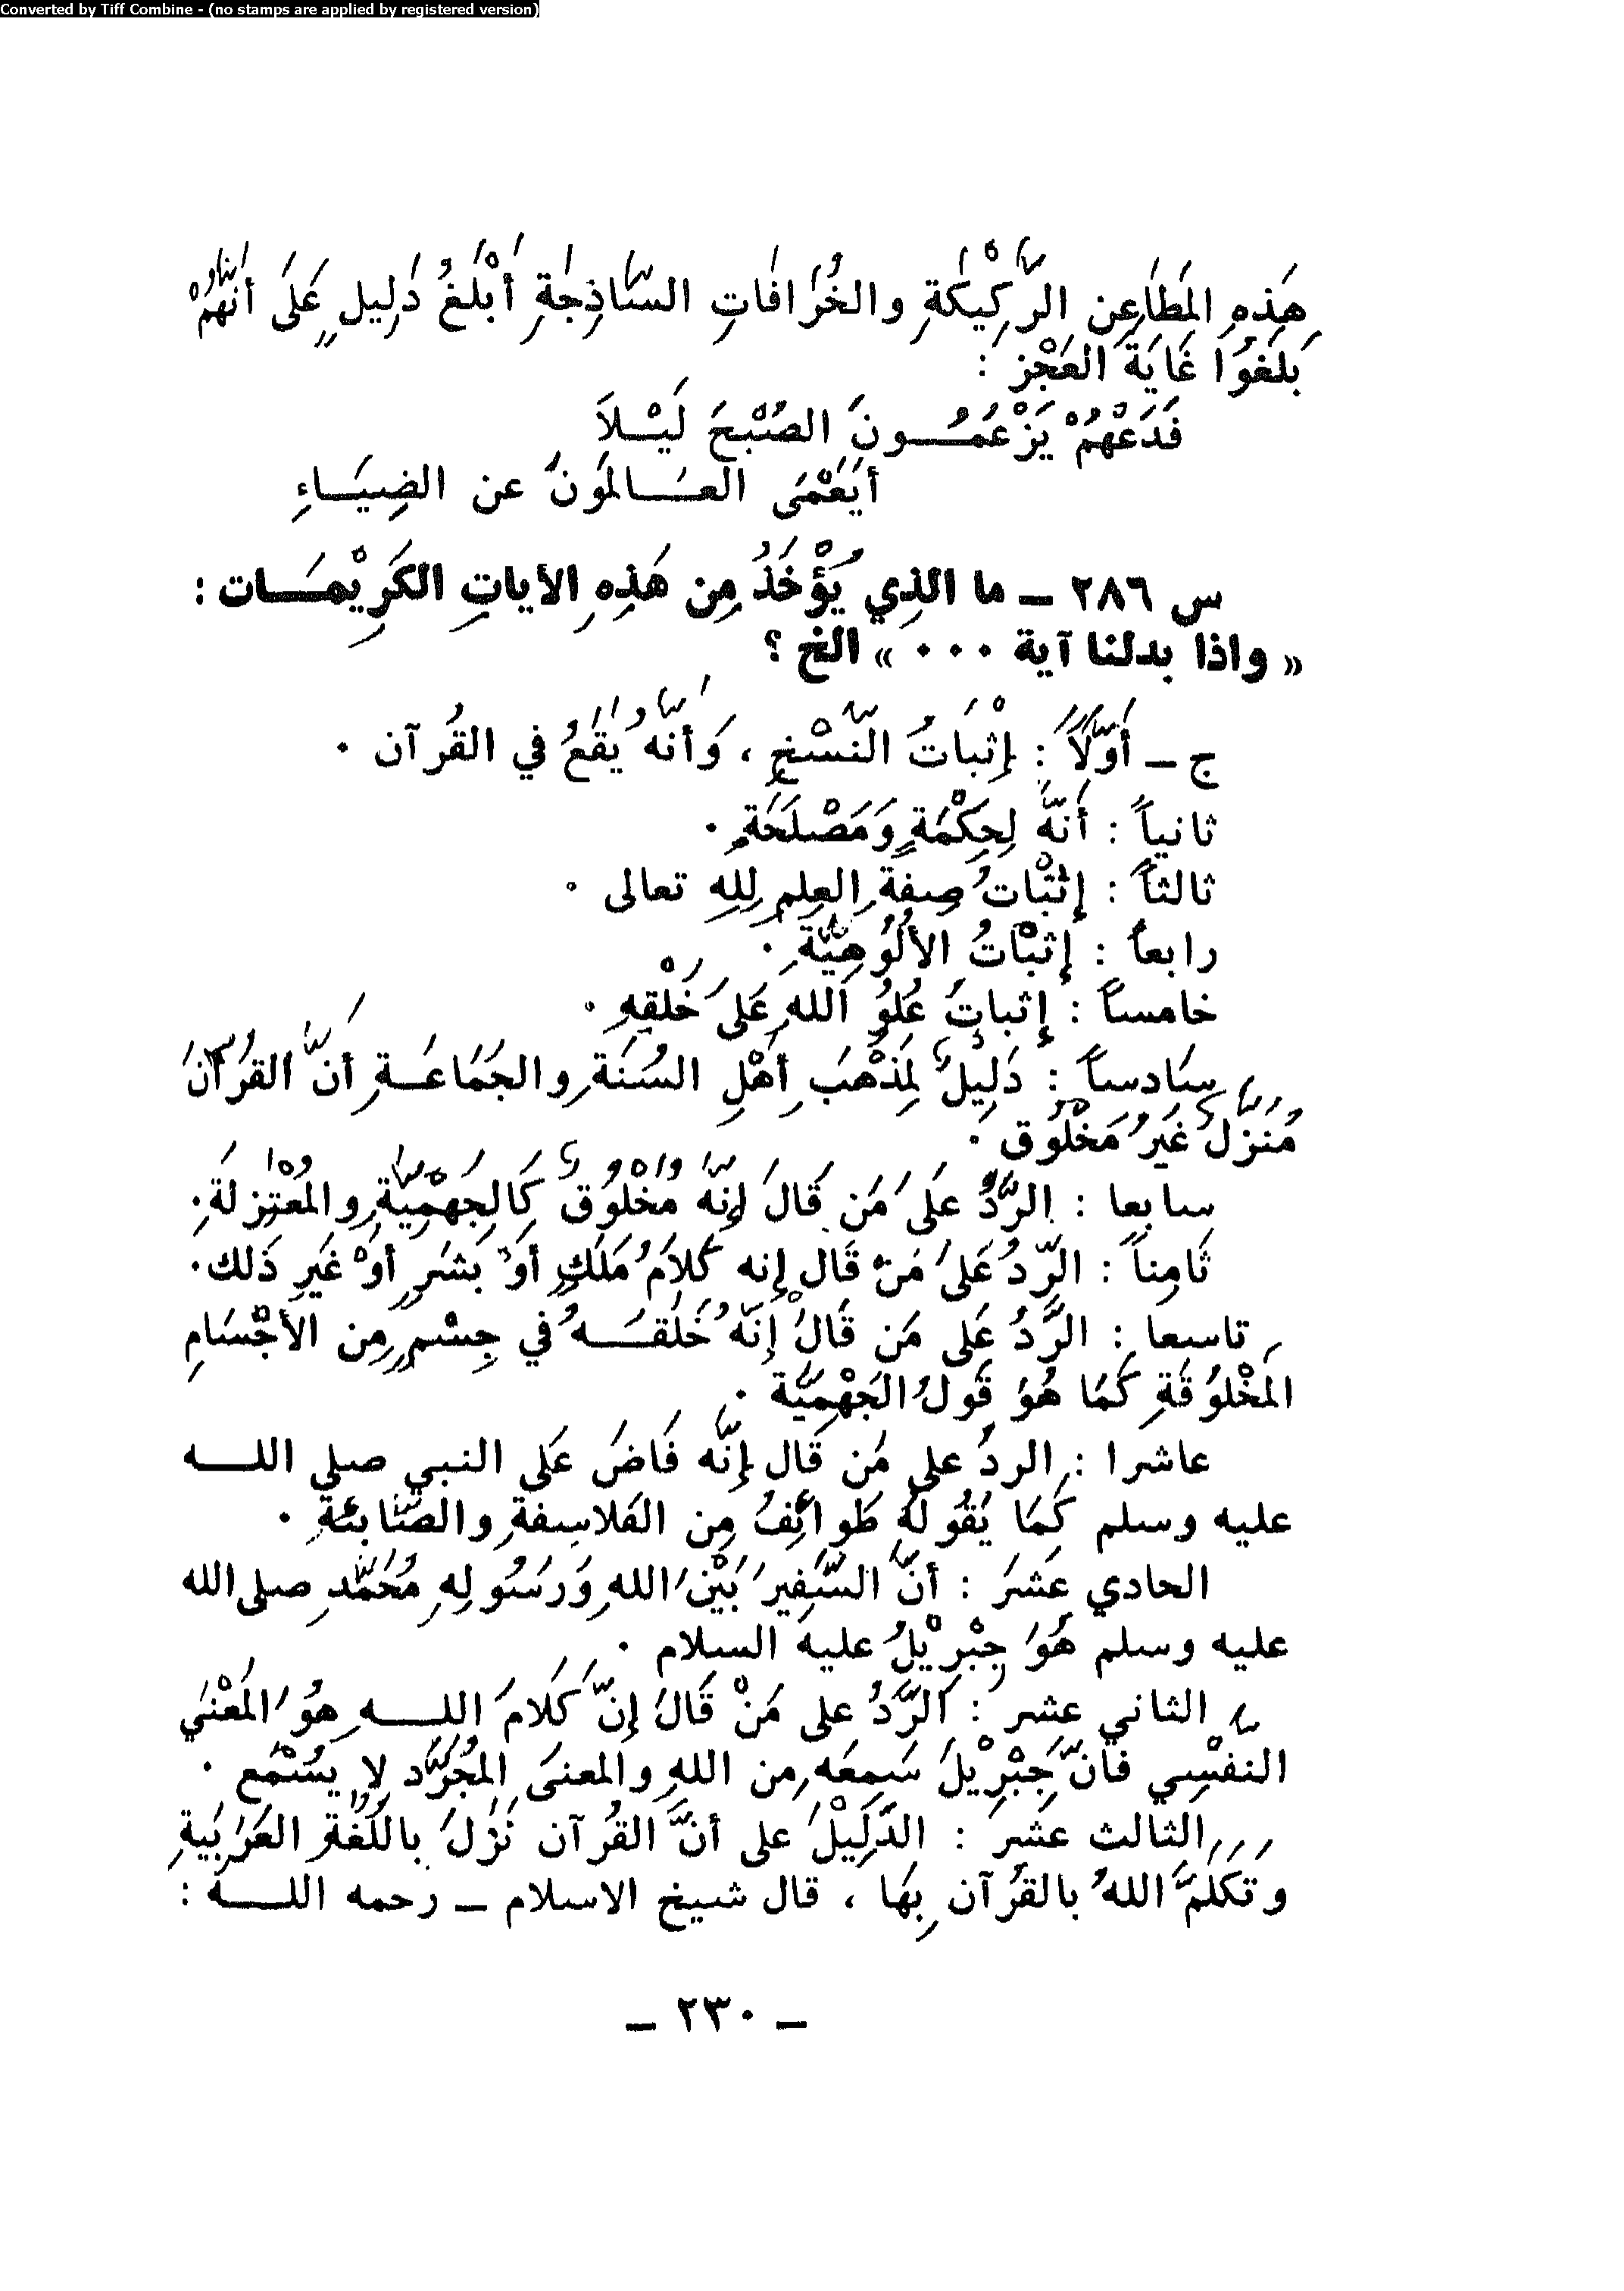 Converted by Tiff Combine - (no stamps are applied by registered version)
هَذِهِ المَطَاعِن الرَّكِيْكَةِ والخُرَافَاتِ السَّاذِجَةِ أَبْلَغُ دَلِيلٍ عَلَى أَنَّهُمْ
بَلَغُوا غَايَةَ العَجْزِ :
فَدَعْهُمْ يَزْعَمُـــونَ الصُبْحَ لَيْـلاَ
أَيَعْمَى العَـــالَمُونَ عن الضِيَـــاءِ
س ٢٨٦ ــ ما الذِي يُؤْخَذُ مِن هَذِهِ الأياتِ الكَرِيْمَـــات :
« واذا بدلنا آية ٠٠٠ » الخ ؟
ج ــ أَوَّلاً : إِثْبَاتُ النَّسْخِ ، وَأَنَّهُ يَقَعُ في القُرآن ٠
ثانياً : أَنَّهُ لِحِكْمَةٍ وَمَصْلَحَةٍ ٠
ثالثاً : إِثْبَاتُ صِفَةِ العِلمِ لِلهِ تعالى ٠
رابعاً : إِثْبَاتُ الأُلُوُهِيَّةِ ٠
خامساً : إِثباتُ عُلُوِ اللهِ عَلَى خَلْقِهِ ٠
سَادِساً : دَلِيْلٌ لِمَذْهَبِ أَهْلِ السُنَةِ والجَمَاعَـــةِ أَنَّ القُرْآنَ
مُنَزَّلٌ غَيْرُ مَخْلُوق ٠
سابعا : الرَّدُّ عَلَى مَن قَالَ إِنَّهُ مَخْلُوْقٌ كَالجَهْمِيَّةِ والمُعْتَزِلَةِ ٠
ثَامِناً : الرَّدُ عَلَى مَنْ قَال إنه كَلاَمُ مَلَكٍ أَوْ بَشَرٍ أَوْ غَيْرِ ذَلك ٠
تاسعا : الرَّدُ عَلى مَن قَالَ إِنَّهُ خَلَقَـــهُ في جِسْمٍ مِن الأَجْسَامِ
المَخْلُوُقَةِ كَمَا هُوَ قَولُ الجَهْمِيَّة ٠
عاشرا : الردُ على مَن قَال إِنَّه فَاضَ عَلى النبي صلى اللـــه
عليه وسلم كَمَا يَقُولُهُ طَوائِفُ مِن الفَلاسِفةِ والصَّابئَةِ ٠
الحادي عَشَرَ : أنَّ السَّفِيرَ بَيْنَ اللهِ وَرَسُولِهِ مُحَمَّدٍ صلى الله
عليه وسلم هُوَ جِبْرِيْلُ عليه السلام ٠
الثاني عشر : الرَّدُ على مَنْ قَالَ إنَّ كَلامَ اللـــهِ هُوَ المَعْنى
النَفْسِي فَانَّ جِبْرِيْلَ سَمِعَه مِن اللهِ والمعنَى المُجَرَّد لا يُسْمَع ٠
الثالث عَشَرَ : الدَّلِيْلُ على أنَّ القُرآن نَزَلَ باللُغَةِ العَرَبَيةِ
وَتَكَلَّمَ اللهُ بالقُرآن بِهَا ، قال شيخ الاسلام ــ رحمه اللـــه :
ــ ٢٣٠ ــ